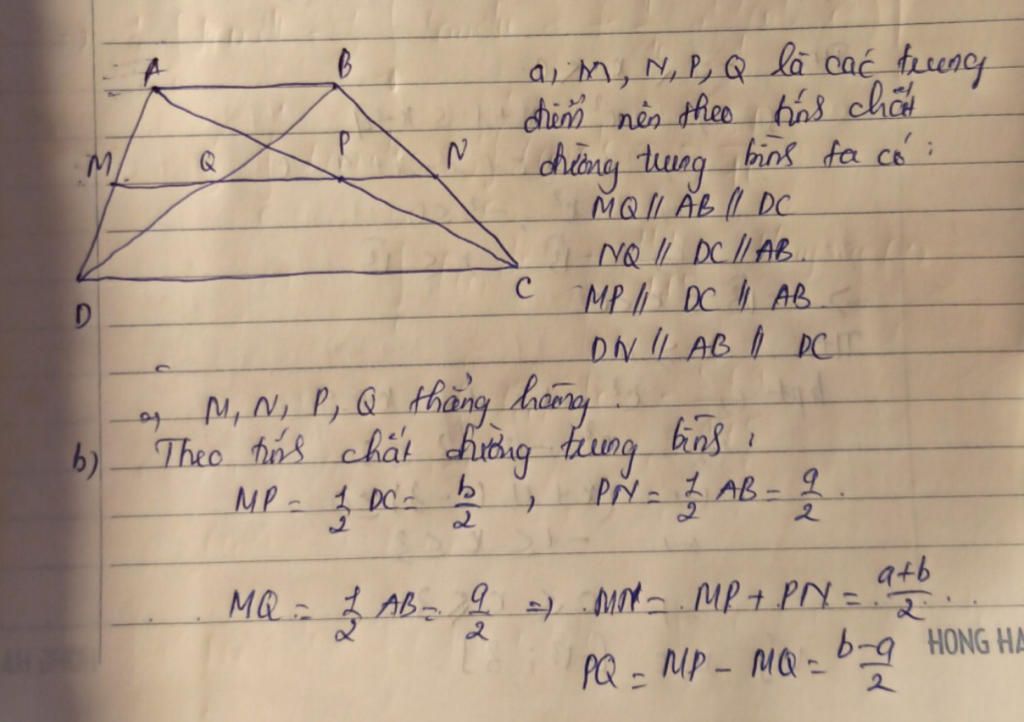 A B
M Q P N
D C
a, M, N, P, Q là các trung
điểm nên theo tính chất
đường trung bình ta có :
MQ // AB // DC
NQ // DC // AB.
MP // DC // AB
DN // AB // DC
a, M, N, P, Q thẳng hàng.
b) Theo tính chất đường trung bình :
MP = 1/2 DC = b/2 , PN = 1/2 AB = a/2 .
MQ = 1/2 AB = a/2 => MN = MP + PN = a+b/2 .
PQ = MP - MQ = b-a/2
HONG HA